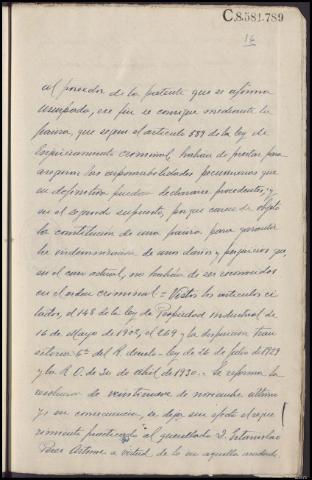 C.8.581.789
16
al poseedor de la patente que se afirma
usurpada, ese fin se consigue mediante la
fianza, que segun el articulo 589 de la ley de
Enjuiciamiento criminal, habran de prestar, para
asegurar las responsabilidades pecuniarias que
en definitiva puedan declararse procedentes, y
en el segundo supuesto, porque carece de objeto
la constitucion de una fianza para garantir
la indemnizacion de unos daños y perjuicios que,
en el caso actual, no habran de ser reconocidos
en el orden criminal = Vistos los articulos ci
tados, el 148 de la ley de Propiedad industrial de
16 de Mayo de 1902, el 269 y la disposicion tran
sitoria 6ª del R. decreto-ley de 26 de Julio de 1929
y la R. O. de 30 de abril de 1930.- Se reforma la
resolucion de veintinueve de noviembre ultimo
y en consecuencia, se deja sin efecto el reque
rimiento practicado al querellado D. Estanislao
a virtud de lo en aquella acordado